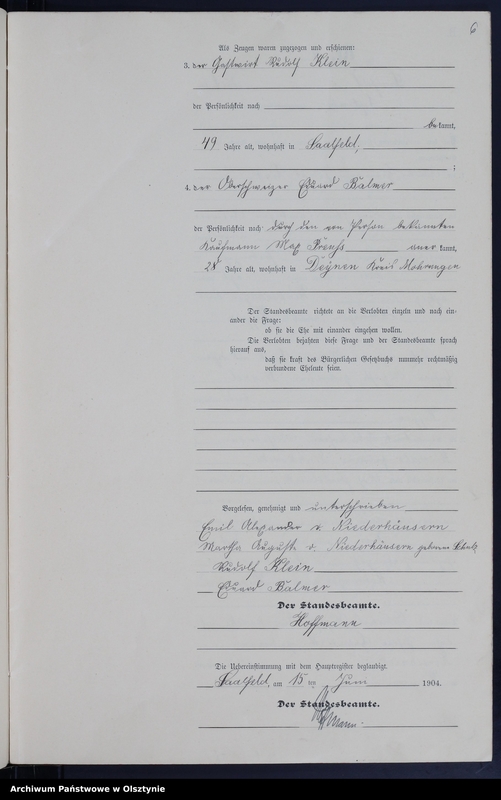 6
Als Zeugen waren zugezogen und erschienen:
3. der Gastwirt Rudolf Klein
der Persönlichkeit nach
bekannt,
49 Jahre alt, wohnhaft in Saalfeld,
;
4. der Oberschweizer Eduard Balmer
der Persönlichkeit nach durch den von Person bekannten
Kaufmann Max Preuß anerkannt,
28 Jahre alt, wohnhaft in Kreis Mohrungen
Der Standesbeamte richtete an die Verlobten einzeln und nach ein-
ander die Frage:
ob sie die Ehe mit einander eingehen wollen.
Die Verlobten bejahten diese Frage und der Standesbeamte sprach
hierauf aus,
daß sie kraft des Bürgerlichen Gesetzbuchs nunmehr rechtmäßig
verbundene Eheleute seien.
Vorgelesen, genehmigt und unterschrieben
Emil Alexander v. Niederhäusern
Martha Auguste v. Niederhäusern geborene Schulz
Rudolf Klein
Eduard Balmer
Der Standesbeamte.
Hoffmann
Die Uebereinstimmung mit dem Hauptregister beglaubigt.
Saalfeld, am 15 ten Juni 1904.
Der Standesbeamte.
Hoffmann.
Archiwum Państwowe w Olsztynie